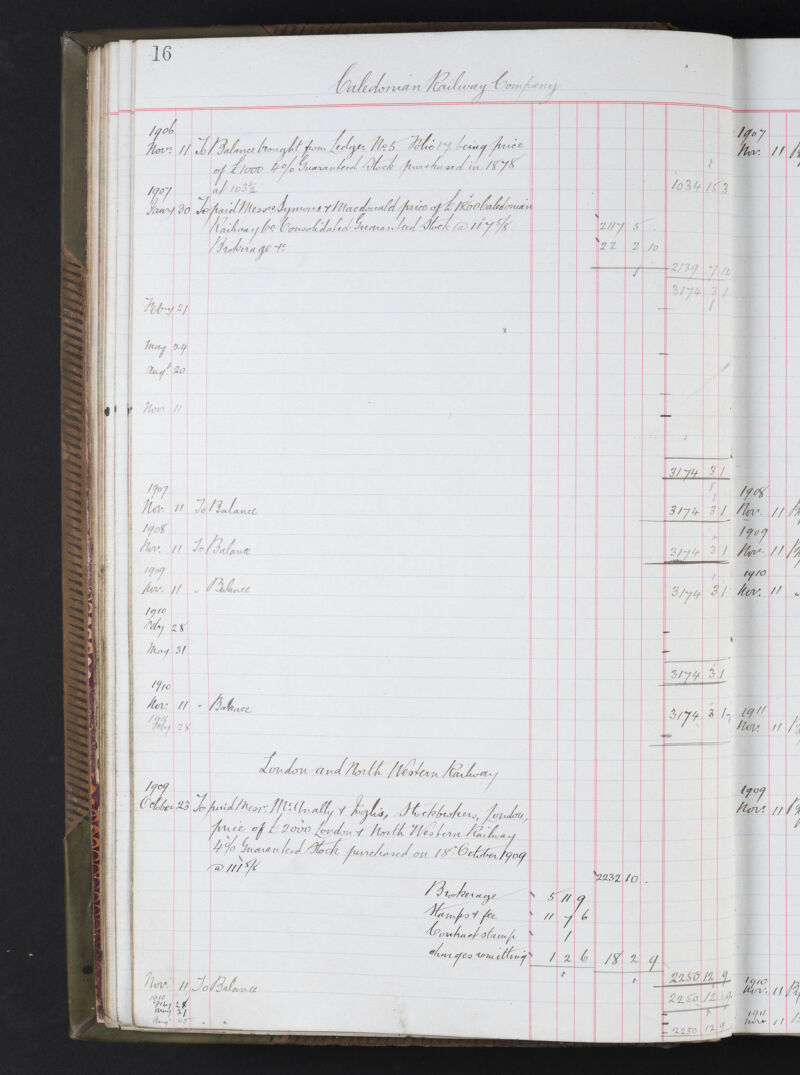 16
Caledonian Railway Company
1906
Nov. 11 To Balance brought from Ledger No. 5 Folio 17 being price
of £1000 4% Guaranteed Stock purchased in 1878
at 103½ 1034 15 3
1907
Jany 30 To paid Messrs Symons & Macdonald price of £1800 Caledonian
Railway Co Consolidated Guaranteed Stock @ 117 5/8 2117 5
Brokerage &c 22 2 10
2139 7 10
3174 3 1
Feby 21
May 24
Augt 20
Nov. 11
3174 3 1
1907
Nov. 11 To Balance 3174 3 1
1908
Nov. 11 To Balance 3174 3 1
1909
Nov. 11 " Balance 3174 3 1
1910
Feby 28
May 31
3174 3 1
1910
Nov. 11 " Balance 3174 3 1
Feby 28
London and North Western Railway
1909
October 23 To paid Messrs. & Inglis, Stockbrokers, London,
price of £2000 London & North Western Railway
4% Guaranteed Stock purchased on 18 October 1909
@ 111 5/8 2232 10 .
Brokerage 5 11 9
Stamps & fee 11 7 6
Contract stamp 1
charges remitting 1 2 6 18 2 9
2250 12 9
Nov. 11 To Balance 2250 12 9
1910
Feby 28
May 31
2250 12 9
1907
Nov. 11
1908
Nov. 11
1909
Nov. 11
1910
Nov. 11 "
1911
Nov. 11
1909
Nov. 11
1910
Nov. 11
1911
Nov. 11